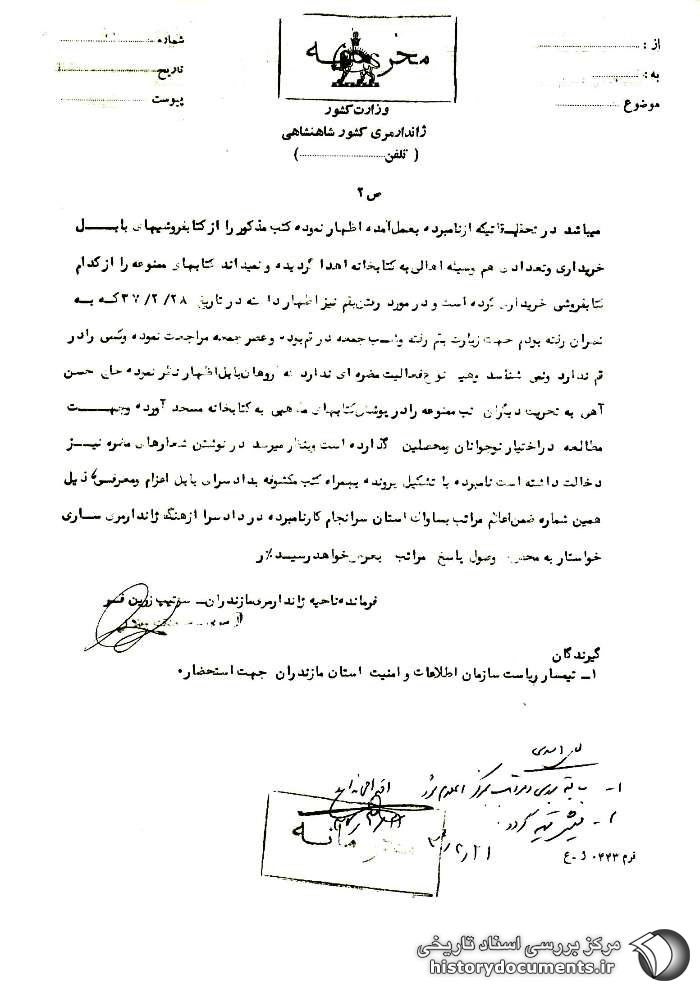 از :
به :
موضوع
محرمانه
وزارت کشور
ژاندارمری کشور شاهنشاهی
( تلفن )
شماره
تاریخ
پیوست
ص ۲
میباشد در تحقیقاتیکه ازنامبرده بعمل‌آمده اظهار نموده کتب مذکور را از کتابفروشیهای بابل
خریداری وتعدادی هم وسیله اهالی به کتابخانه اهدا گردیده و نمیداند کتابهای ممنوعه را از کدام
کتابفروشی خریداری کرده است و در مورد رفتن‌بقم نیز اظهار داشته در تاریخ ۳۷/۲/۲۸ که به
تهران رفته بودم جهت زیارت بقم رفته و شب جمعه در قم‌بوده و عصر جمعه مراجعت نموده وکسی را در
قم ندارد ونمی شناسد وهیچ نوع فعالیت مضره ای ندارد گروهان‌بابل اظهار نظر نموده حاجی حسن
آهی به تحریک دیگران کتب ممنوعه را در پوشش کتابهای مذهبی به کتابخانه مسجد آورده وجهت
مطالعه در اختیار نوجوانان ومحصلین گذارده است وبنظر میرسد در نوشتن شعارهای مضره نیز
دخالت داشته است نامبرده با تشکیل پرونده بهمراه کتب مکشوفه بدادسرای بابل اعزام ومعرفی ذیل
همین شماره ضمن‌اعلام مراتب بساواک استان سرانجام کارنامبرده در دادسرا ازهنگ ژاندارمری ساری
خواستار به محض وصول پاسخ مراتب بعرض‌خواهد رسید٪ر
فرمانده ناحیه ژاندارمری‌مازندران ـ سرتیپ زرین فر
گیرندگان
۱ـ تیمسار ریاست سازمان اطلاعات و امنیت استان مازندران جهت استحضار.
۱-
۲- گردد
محرمانه
فرم ۰۴۴۳ ژ-ع
مرکز بررسی اسناد تاریخی
historydocuments.ir